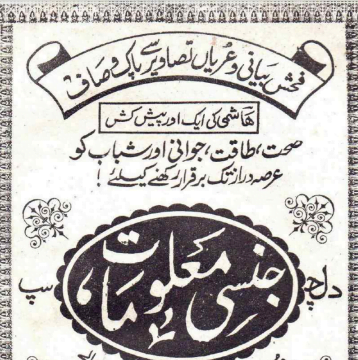 فحش بیانی و عُریاں تصاویر سے پاک و صاف
ھاشمی کی ایک اور پیش کش
صحت، طاقت، جوانی اور شباب کو
عرصہ دراز تک برقرار رکھنے کیلئے !
دلچسپ
جنسی معلومات